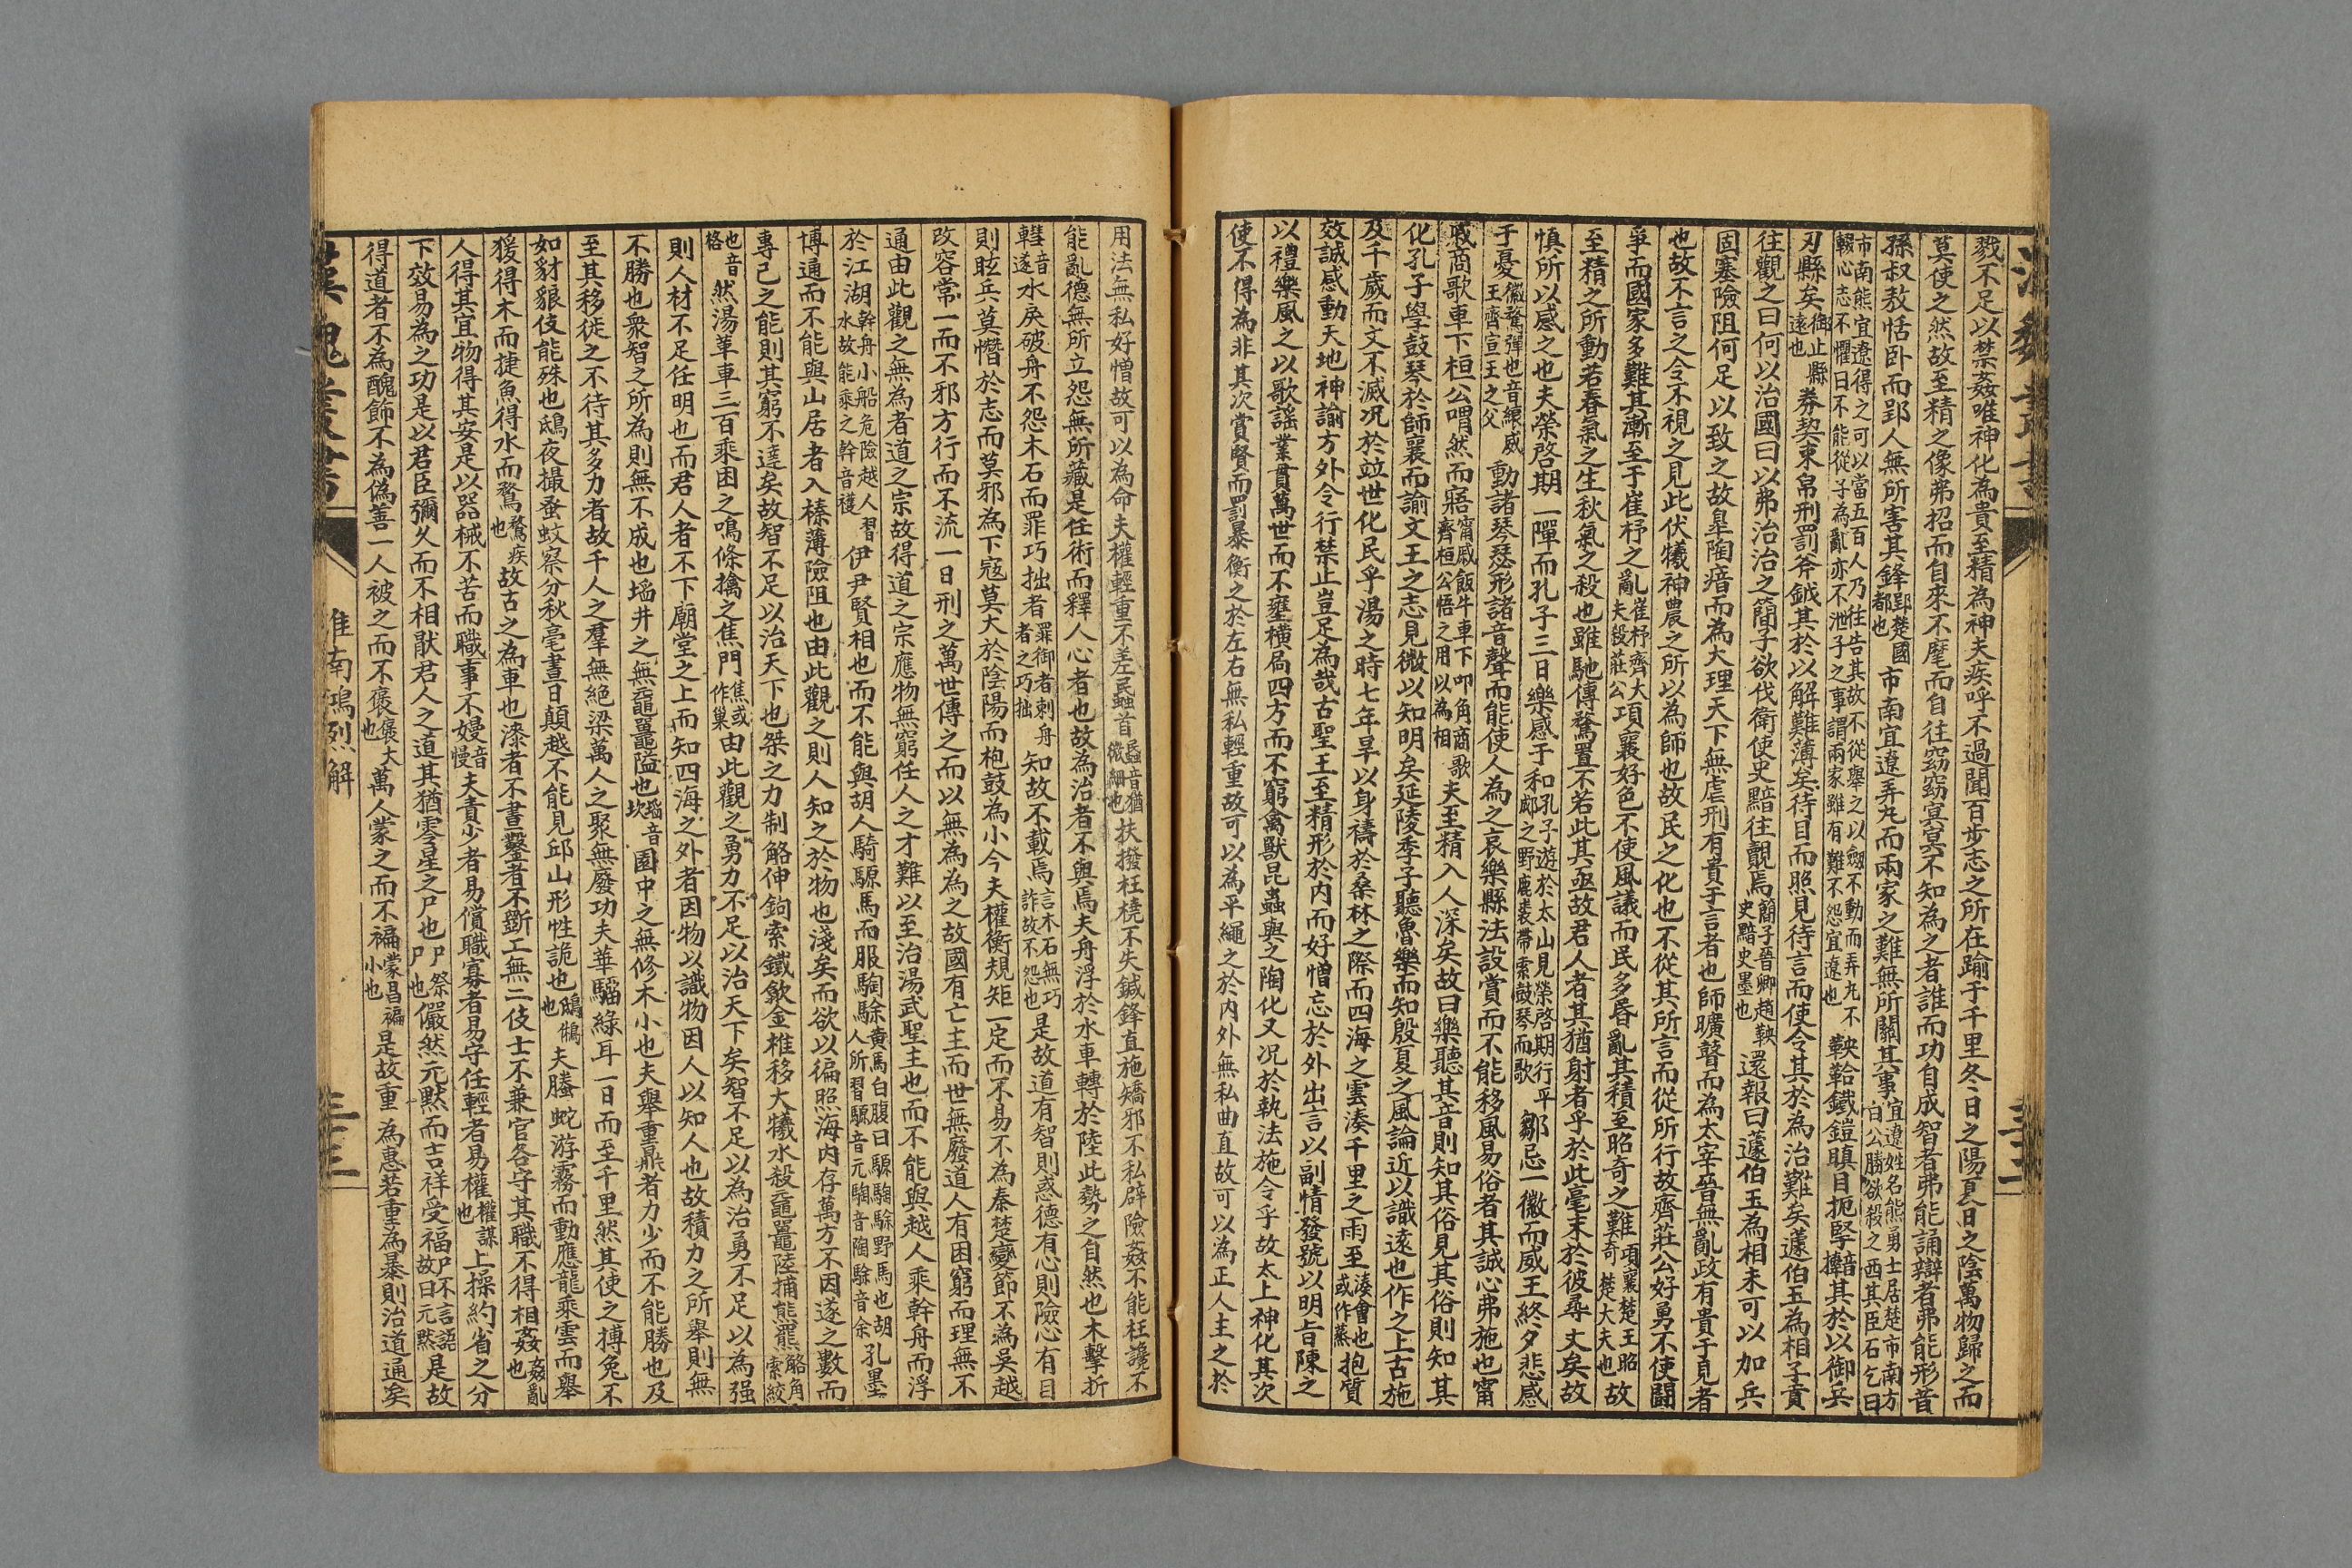 戮不足以禁姦唯神化為貴至精為神夫疾呼不過聞百步志之所在踰于千里冬日之陽夏日之陰萬物歸之而
莫使之然故至精之像弗招而自來不麾而自往窈窈冥冥不知為之者誰而功自成智者弗能誦辯者弗能形昔
孫叔敖恬卧而郢人無所害其鋒郢楚國都也市南宜遼弄丸而兩家之難無所關其事宜遼姓名熊勇士居楚市南方白公勝欲殺之西其臣石乞曰
市南熊宜遼得之可以當五百人乃往告其故不從舉之以劒不動而弄丸不輟心志不懼曰不能從子為亂亦不泄子之事謂兩家雖有難不怨宜遼也鞅鞈鐵鎧瞋目扼掔音擥其於以御兵
刃縣矣御止縣遠也券契束帛刑罰斧鉞其於以解難薄矣待目而照見待言而使令其於為治難矣蘧伯玉為相子貢
往觀之曰何以治國曰以弗治治之簡子欲伐衛使史黯往覿焉簡子晉卿趙鞅史黯史墨也還報曰蘧伯玉為相未可以加兵
固塞險阻何足以致之故臯陶瘖而為大理天下無虐刑有貴于言者也師曠瞽而為太宰晉無亂政有貴于見者
也故不言之令不視之見此伏犧神農之所以為師也故民之化也不從其所言而從所行故齊莊公好勇不使鬪
爭而國家多難其漸至于崔杼之亂崔杼齊大夫殺莊公項襄好色不使風議而民多昏亂其積至昭奇之難項襄楚王昭奇楚大夫也故
至精之所動若春氣之生秋氣之殺也雖馳傳騖置不若此其亟故君人者其猶射者乎於此毫末於彼尋丈矣故
慎所以感之也夫榮啓期一彈而孔子三日樂感于和孔子遊於太山見榮啓期行乎郕之野鹿裘帶索鼓琴而歌鄒忌一徽而威王終夕悲感
于憂徽騖彈也音纕威王齊宣王之父動諸琴瑟形諸音聲而能使人為之哀樂縣法設賞而不能移風易俗者其誠心弗施也甯
戚商歌車下桓公喟然而寤甯戚飯牛車下叩角商歌齊桓公悟之用以為相夫至精入人深矣故曰樂聽其音則知其俗見其俗則知其
化孔子學鼓琴於師襄而諭文王之志見微以知明矣延陵季子聽魯樂而知殷夏之風論近以識遠也作之上古施
及千歲而文不滅况於竝世化民乎湯之時七年旱以身禱於桑林之際而四海之雲湊千里之雨至湊會也或作蒸抱質
效誠感動天地神諭方外令行禁止豈足為哉古聖王至精形於内而好憎忘於外出言以副情發號以明旨陳之
以禮樂風之以歌謡業貫萬世而不壅横扃四方而不窮禽獸昆蟲與之陶化又况於執法施令乎故太上神化其次
使不得為非其次賞賢而罰暴衡之於左右無私輕重故可以為平繩之於内外無私曲直故可以為正人主之於
用法無私好憎故可以為命夫權輕重不差蟁首蟁音猶微細也扶撥枉橈不失鍼鋒直施矯邪不私辟險姦不能枉讒不
能亂德無所立怨無所藏是任術而釋人心者也故為治者不與焉夫舟浮於水車轉於陸此勢之自然也木擊折
轊音遂水戾破舟不怨木石而罪巧拙者罪御者剌舟者之巧拙知故不載焉言木石無巧詐故不怨也是故道有智則惑德有心則險心有目
則眩兵莫憯於志而莫邪為下寇莫大於陰陽而枹鼓為小今夫權衡規矩一定而不易不為秦楚變節不為吳越
改容常一而不邪方行而不流一日刑之萬世傳之而以無為為之故國有亡主而世無廢道人有困窮而理無不
通由此觀之無為者道之宗故得道之宗應物無窮任人之才難以至治湯武聖主也而不能與越人乘幹舟而浮
於江湖幹舟小船危險越人習水故能乘之幹音禭伊尹賢相也而不能與胡人騎騵馬而服騊駼黄馬白腹曰騵騊駼野馬也胡人所習騵音元騊音陶駼音余孔墨
博通而不能與山居者入榛薄險阻也由此觀之則人知之於物也淺矣而欲以徧照海内存萬方不因遂之數而
專己之能則其窮不達矣故智不足以治天下也桀之力制觡伸鉤索鐵歙金椎移大犧水殺黿鼉陸捕熊羆觡角索絞
也音格然湯革車三百乘困之鳴條擒之焦門焦或作巢由此觀之勇力不足以治天下矣智不足以為治勇不足以為强
則人材不足任明也而君人者不下廟堂之上而知四海之外者因物以識物因人以知人也故積力之所舉則無
不勝也衆智之所為則無不成也塪井之無黿鼉隘也塪音坎園中之無修木小也夫舉重鼎者力少而不能勝也及
至其移徙之不待其多力者故千人之羣無絶梁萬人之聚無廢功夫華騮緑耳一日而至千里然其使之搏兔不
如豺狼伎能殊也鴟夜撮蚤蚊察分秋毫晝日顛越不能見邱山形性詭也鴟鵂也夫螣蛇游霧而動應龍乘雲而舉
猨得木而捷魚得水而騖騖疾也故古之為車也漆者不書鑿者不斵工無二伎士不兼官各守其職不得相姦姦亂也
人得其宜物得其安是以器械不苦而職事不嫚音慢夫責少者易償職寡者易守任輕者易權權謀也上操約省之分
下效易為之功是以君臣彌久而不相猒君人之道其猶零星之尸也尸祭尸也儼然元默而吉祥受福尸不言語故曰元默是故
得道者不為醜飾不為偽善一人被之而不褒褒大也萬人蒙之而不褊蒙冒褊小也是故重為惠若重為暴則治道通矣
漢魏叢書
淮南鴻烈解
三三